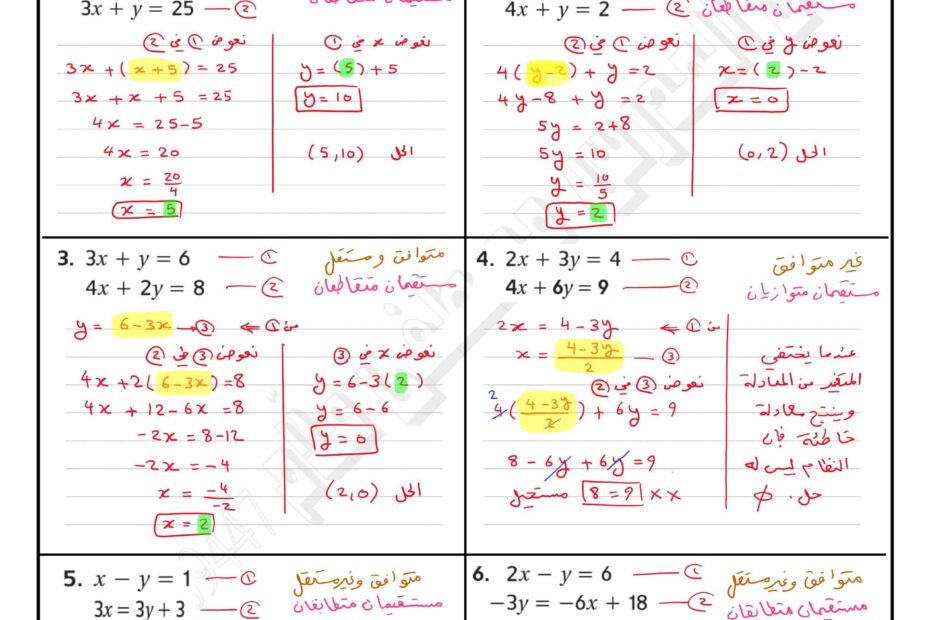 3x + y = 25 —— ②
نعوض ① في ②
3x + (x + 5) = 25
3x + x + 5 = 25
4x = 25 - 5
4x = 20
x = 20/4
x = 5
نعوض x في ①
y = (5) + 5
y = 10
الحل (5, 10)
4x + y = 2 —— ②
مستقيمان متقاطعان
نعوض ① في ②
4(y - 2) + y = 2
4y - 8 + y = 2
5y = 2 + 8
5y = 10
y = 10/5
y = 2
نعوض y في ①
x = (2) - 2
x = 0
الحل (0, 2)
3. 3x + y = 6 —— ①
متوافق ومستقل
4x + 2y = 8 —— ②
مستقيمان متقاطعان
من ① ⇐ y = 6 - 3x → ③
نعوض ③ في ②
4x + 2(6 - 3x) = 8
4x + 12 - 6x = 8
-2x = 8 - 12
-2x = -4
x = -4/-2
x = 2
نعوض x في ③
y = 6 - 3(2)
y = 6 - 6
y = 0
الحل (2, 0)
4. 2x + 3y = 4 —— ①
غير متوافق
4x + 6y = 9 —— ②
مستقيمان متوازيان
من ① ⇐ 2x = 4 - 3y
x = (4 - 3y)/2 —— ③
نعوض ③ في ②
2
4((4 - 3y)/2) + 6y = 9
8 - 6y + 6y = 9
مستحيل 8 = 9 ××
عندما يختفي
المتغير من المعادلة
وينتج معادلة
خاطئة فإن
النظام ليس له
حل. ∅
5. x − y = 1 —— ①
متوافق وغير مستقل
3x = 3y + 3 —— ②
مستقيمان متطابقان
6. 2x − y = 6 —— ①
متوافق وغير مستقل
−3y = −6x + 18 —— ②
مستقيمان متطابقان